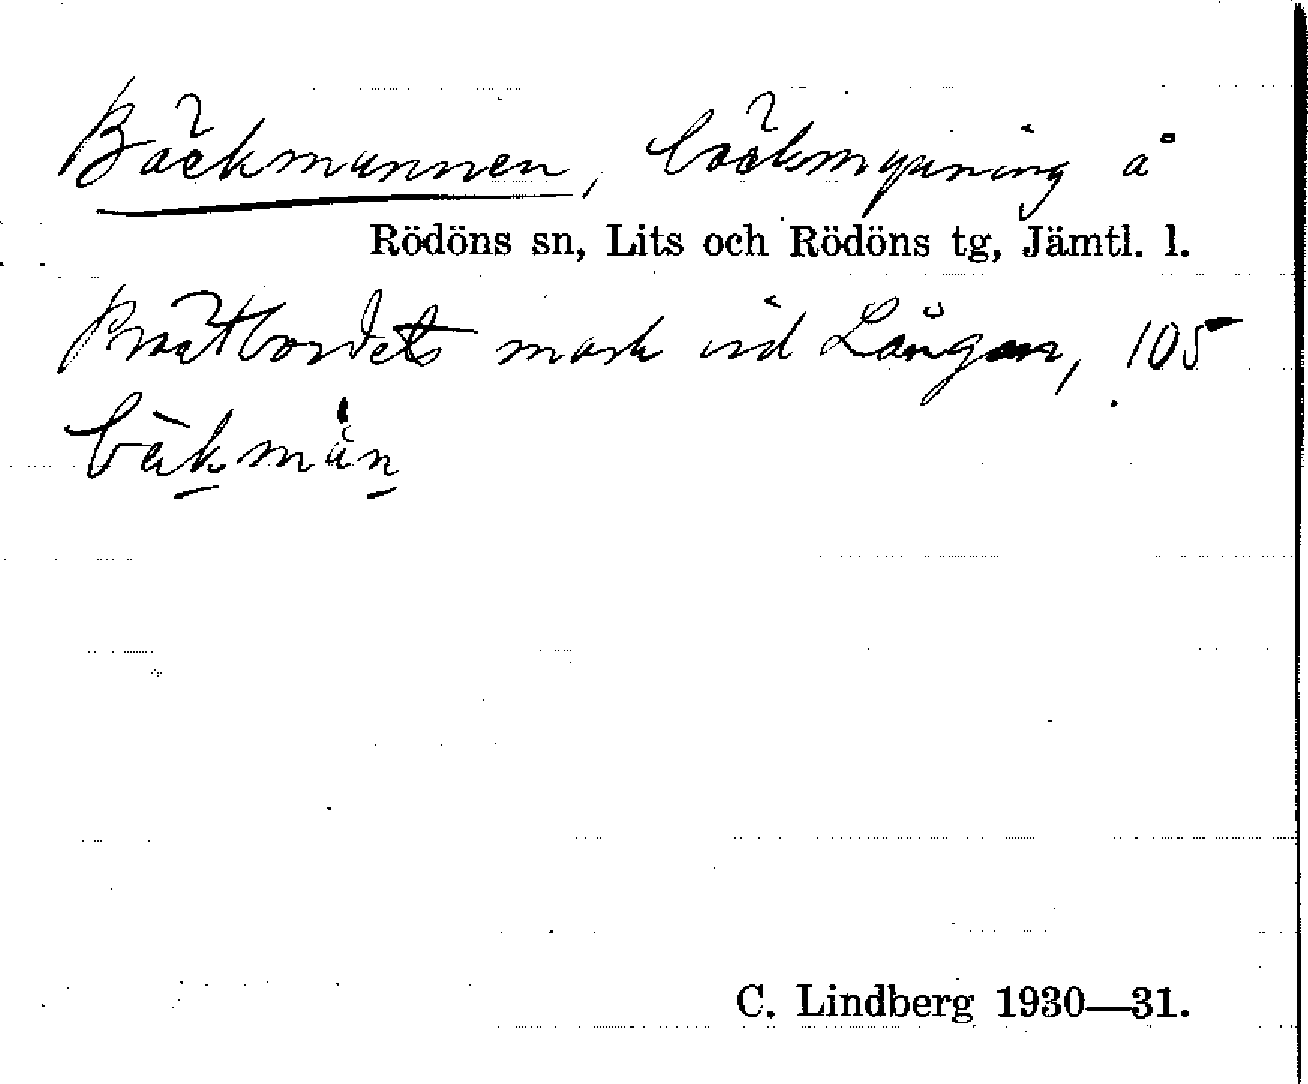 Bäckmunnen, bäckmynning å
Rödöns sn, Lits och Rödöns tg, Jämtl. l.
Prästbordets mark vid Långan, 105
bäkmun
C. Lindberg 1930—31.